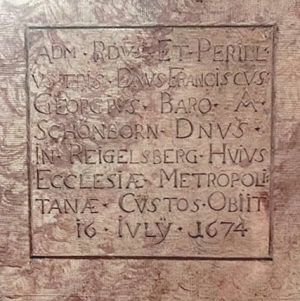 ADM · RDVS · ET · PERILL·
VSTRIS · DNVS FRANCISCVS·
GEORGIVS · BARO · A·
SCHÖNBORN · DNVS ·
IN · REIGELSBERG · HVIVS
ECCLESIÆ · METROPOLI·
TANÆ · CVSTOS · OBIIT
16 · IVLŸ · 1674